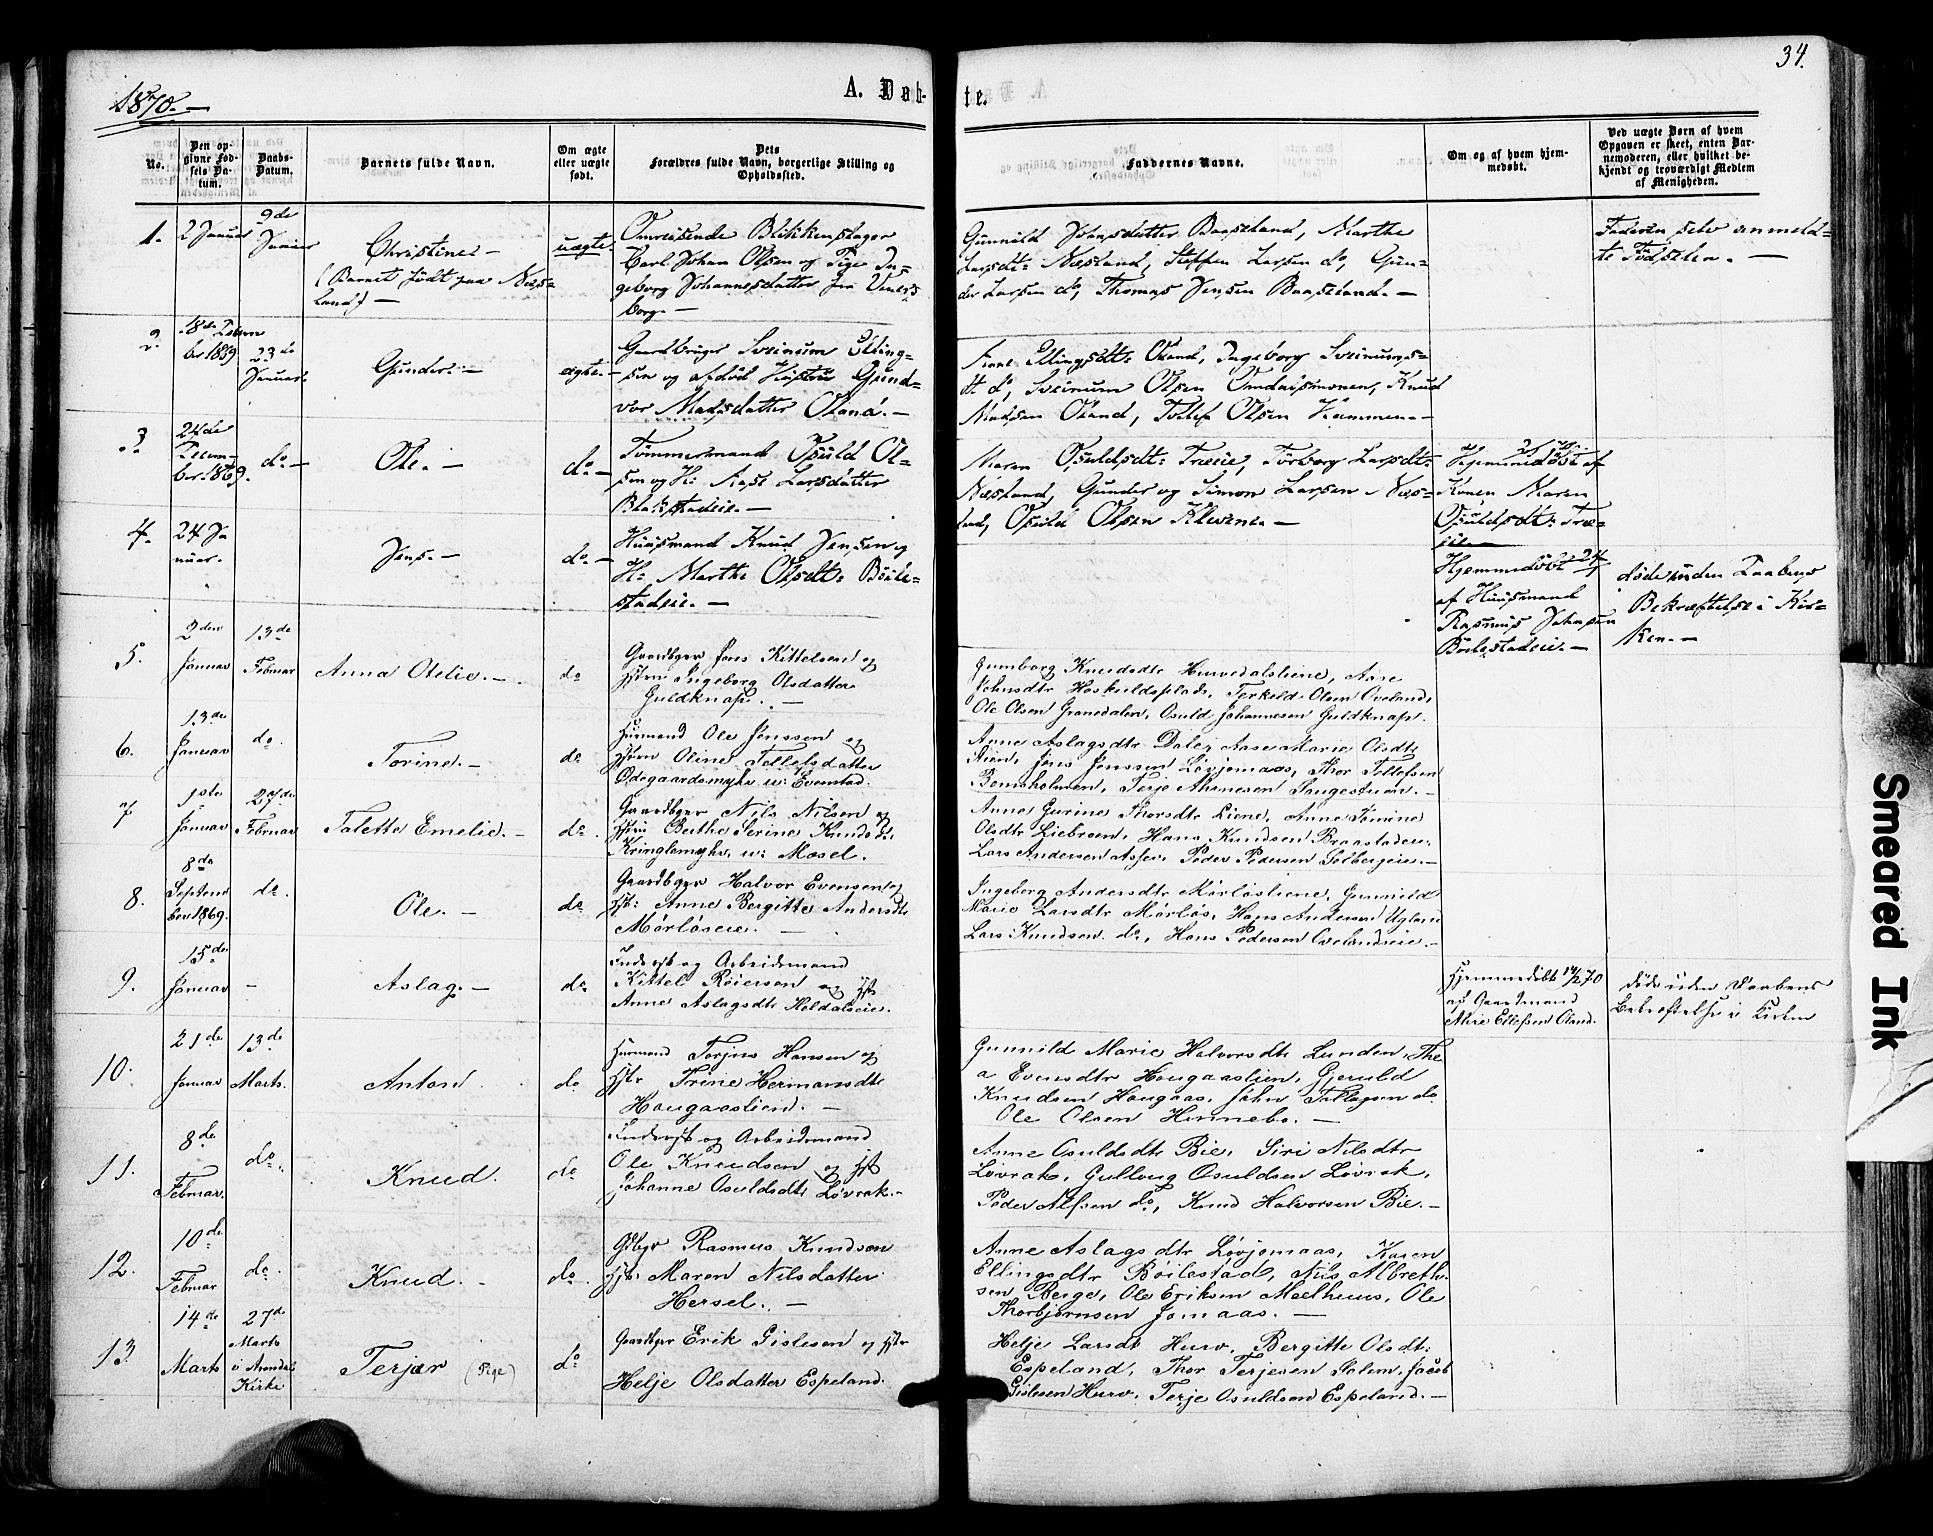 34.
1870.—
A. Døb-
te.
No.
Den op-
givne Fød-
sels Da-
tum.
Daabs-
Datum.
Barnets fulde Navn.
Om ægte
eller uægte
født.
Dets
Forældres fulde Navn, borgerlige Stilling og
Opholdssted.
Faddernes Navne.
Om og af hvem hjem-
medøbt.
Ved uægte Børn af hvem
Opgaven er skeet, enten Bar-
nemoderen, eller hvilket be-
kjendt og troværdigt Medlem
af Menigheden.
1.
2 Januar
9de
Januar
Christine—
(Barnet født paa Næs-
land)—
uægte
Omreisende Blikkenslager
Carl Johan Olsen og Pige In-
geborg Johannesdatter fra Veners-
borg.—
Gunnild Jensdatter Baaseland, Marthe
Larsdt: Næsland, Steffen Larsen do, Gun-
der Larsen do, Thomas Jensen Baaseland.—
Faderen selv anmeld-
te Fødselen.—
2.
18de Decem
ber 1869
23de
Januar.
Gunder.—
ægte.—
Gaardbruger Sveinum Elling-
sen og afdød Hustru Gund-
vor Madsdatter Oland.—
Ellingsdt: Oland, Ingeborg Sveinums-
dt do, Sveinum Olsen Knud
Madsen Oland, Tollef Olsen Hammen.—
3.
24de
Decem-
ber 1869.
do.—
Ole.—
do.—
Tømmermand Osuld Ol-
sen og H: Aase Larsdatter
Blakstadeie.—
Maren Osuldsdt: Træeie, Torborg Larsdt:
Næsland, Gunder og Simon Larsen Næs-
land, Osuld Olsen Klevene.—
Hjemmedøbt af
Konen Maren
Osuldsdt: Træ-
eie—
4.
24 Ja
nuar.
Jens.—
do.—
Huusmand Knud Jensen og
H: Marthe Olsdt: Böile-
stadeie.—
Hjemmedøbt 24/1
af Huusmand
Rasmus Johnsen
Böilestadeie.—
døde uden Daabens
Bekræftelse i Kir-
ken.—
5.
2den
Januar
13de
Februar
Anna Otelie.—
do
Gaardbger Jens Kittelsen og
Hstru Ingeborg Olsdatter
Guldknap.—
Gumborg Knudsdtr Hurvedalsliene, Aase
Johnsdtr Hoskuldsplads, Terkeld Olsen Oveland,
Ole Olsen Granedalen, Osuld Johannesen Guldknap.
6.
13de
Januar
do.
Torine.—
do
Husmand Ole Jenssen og
Hstru Oline Tellefsdatter
Ødegaardsmyhr u: Evenstad.
Anne Aslagsdtr Dale, Aase Marie Olsdtr
Stien, Jens Jenssen Løvjomaas, Thor Tellefsen
Bomsholmen, Terje Annesen Sangestuen.—
7
1ste
Januar
27de
Februar
Talette Emelie.—
do.
Gaardbger Nils Nilsen og
Hstru Berthe Serine Knudsdt.
Kringlemyhr, u: Mæsel.
Anne Gurine Thorsdtr Liene, Anne Tomine
Olsdtr Liebroen, Hans Knudsen Braastadeie,
Lars Andersen Assev. Peder Pedersen Solbergeie.—
8.
8de
Septem
ber 1869.
do.
Ole.—
do
Gaardbger Halvor Evensen og
Hst: Anne Bergitte Andersdt.
Mørløseie.—
Ingeborg Andersdtr Mørløsliene, Gunnild
Marie Larsdtr Mørløs, Hans Andersen Ugland
Lars Knudsen do, Hans Pedersen Ovelandseie.—
9.
15de
Januar
-
Aslag.—
do.
Inderst og Arbeidsmand
Kittel Røiersen og Hst
Anne Aslagsdtr Heldalseie.
Hjemmedøbt 14/2 70
af Gaardmand
Ellefsen Oland.
døde uden Daabens
Bekræftelse i Kirken
10.
21de
Januar
13de
Marts.
Anton
do
Husmand Torjus Hansen og
Hstr Trine Hermansdtr
Hougaaslien.—
Gunnild Marie Halvorsdtr Lunden, The
a Evensdtr Hougaaslien, Gjeruld
Knudsen Hougaas, John Tellefsen do
Ole Olsen Hinnebo.—
11.
8de
Februar.
do.
Knud.
do
Inderst og Arbeidsmand
Ole Knudsen og Hst
Johanne Osuldsdtr Løvrak.—
Anne Osuldsdtr Bie, Siri Nilsdtr
Løvrak, Gullaug Osuldsen Løvrak,
Peder Alfsen do, Knud Halvorsen Bie.—
12.
10de
Februar
do.
Knud.—
do.
Gdbgr Rasmus Knudsen
Hst: Maren Nilsdatter
Hersel.—
Anne Aslagsdtr Løvjomaas, Karen
Ellingsdtr Bøilestad, Nils Albreth-
sen Berge, Ole Eriksen Mælhuus, Ole
Thorbjørnsen Jomaas.—
13.
14de
Marts
27de
Marts
i Arendal
Kirke
Terjær (Pige)
do
Gaardbger Erik Gislesen og Hstr
Helje Olsdatter Espeland.
Helje Larsdt Hurv, Bergitte Olsdt:
Espeland, Thor Terjesen Salem, Jacob
Gislesen Hurv, Terje Osuldsen Espeland.—
Smeared Ink